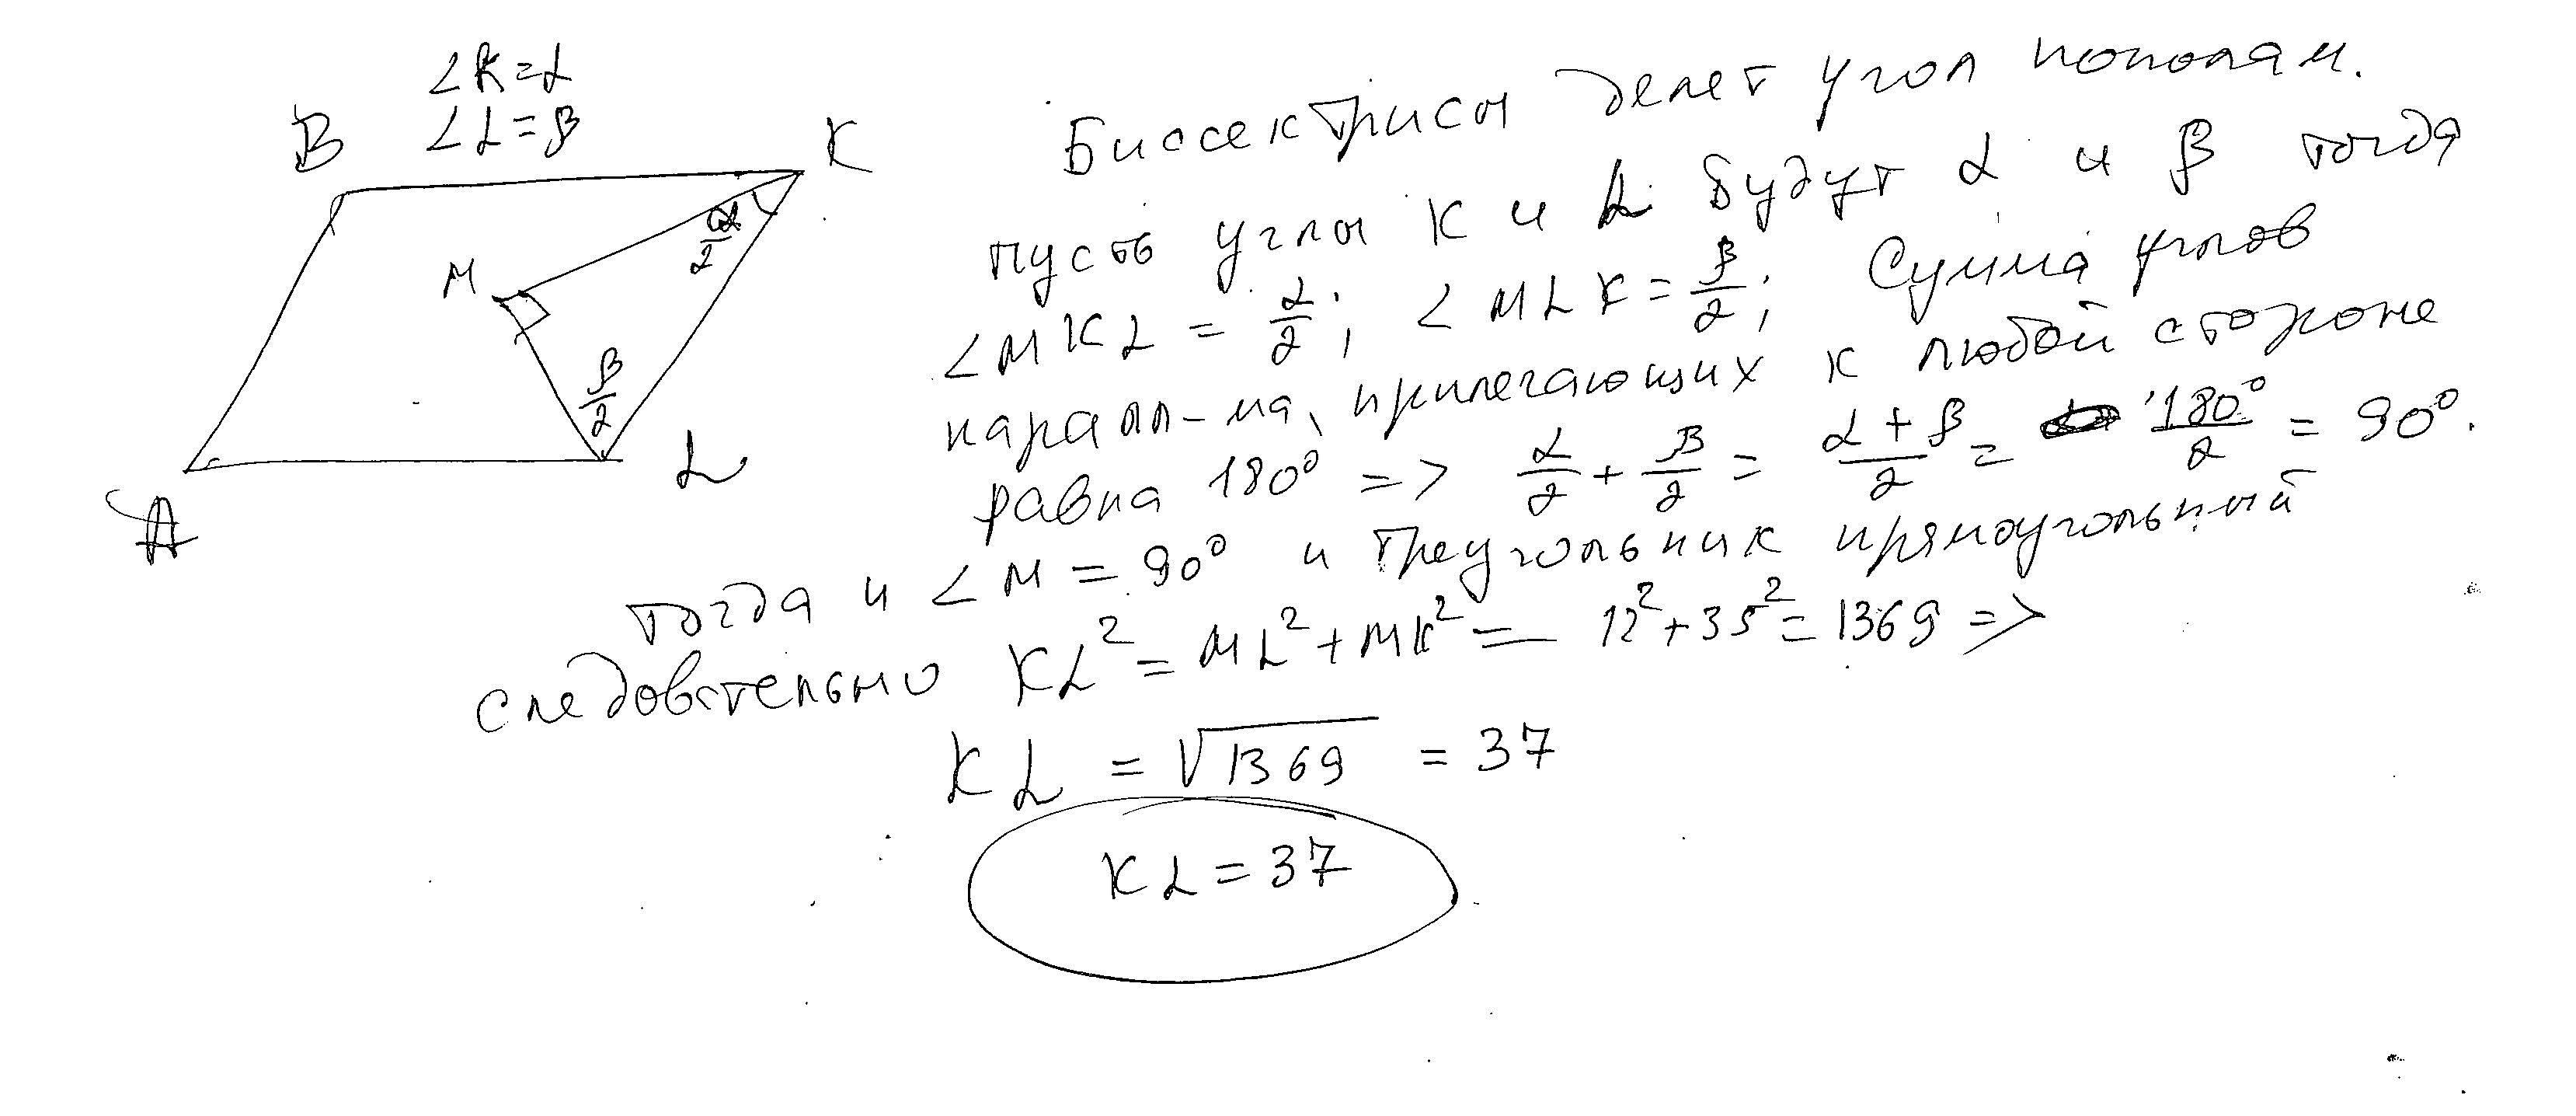 ∠K=α
∠L=β
B
K
α/2
M
β/2
A
L
Биссектрисы делет угол пополам.
пусть углы K и L будут α и β тогда
∠MKL = α/2; ∠MLK = β/2; Сумма углов
паралл-ма, прилегающих к любой стороне
равна 180° => α/2 + β/2 = (α+β)/2 = 180°/2 = 90°.
тогда и ∠M = 90° и треугольник прямоугольный
следовательно KL² = ML² + MK² = 12² + 35² = 1369 =>
KL = √1369 = 37
KL = 37